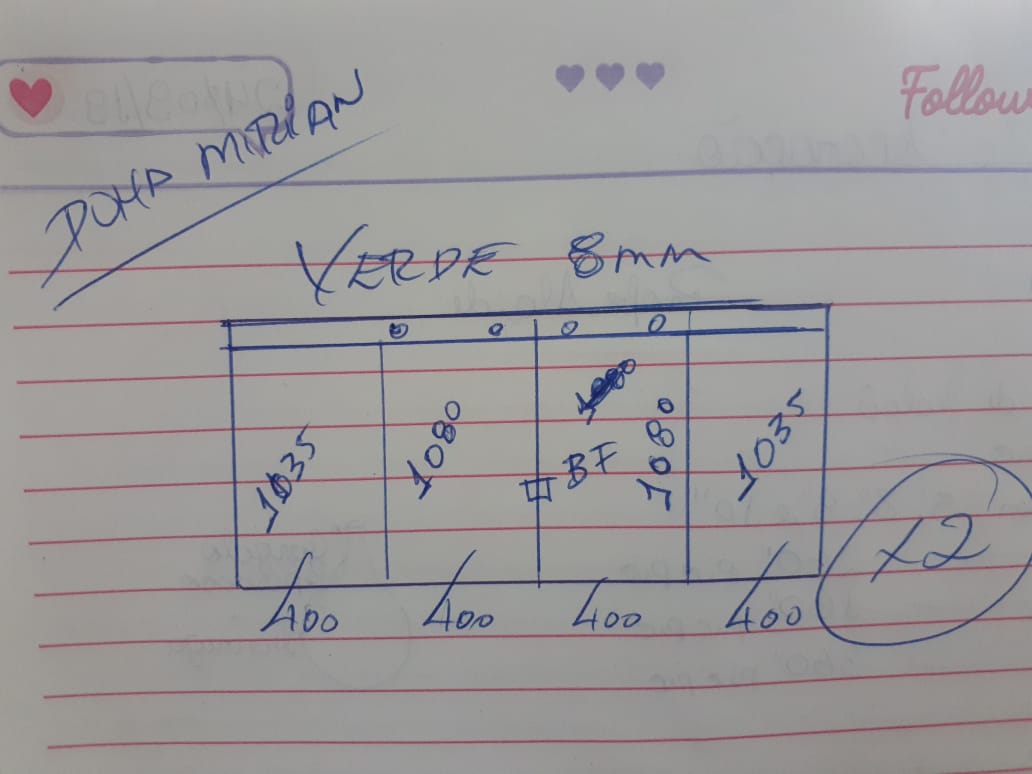 Follow
DONA MIRIAN
VERDE 8mm
1035 1080 BF 1080 1035
X2
400 400 400 400